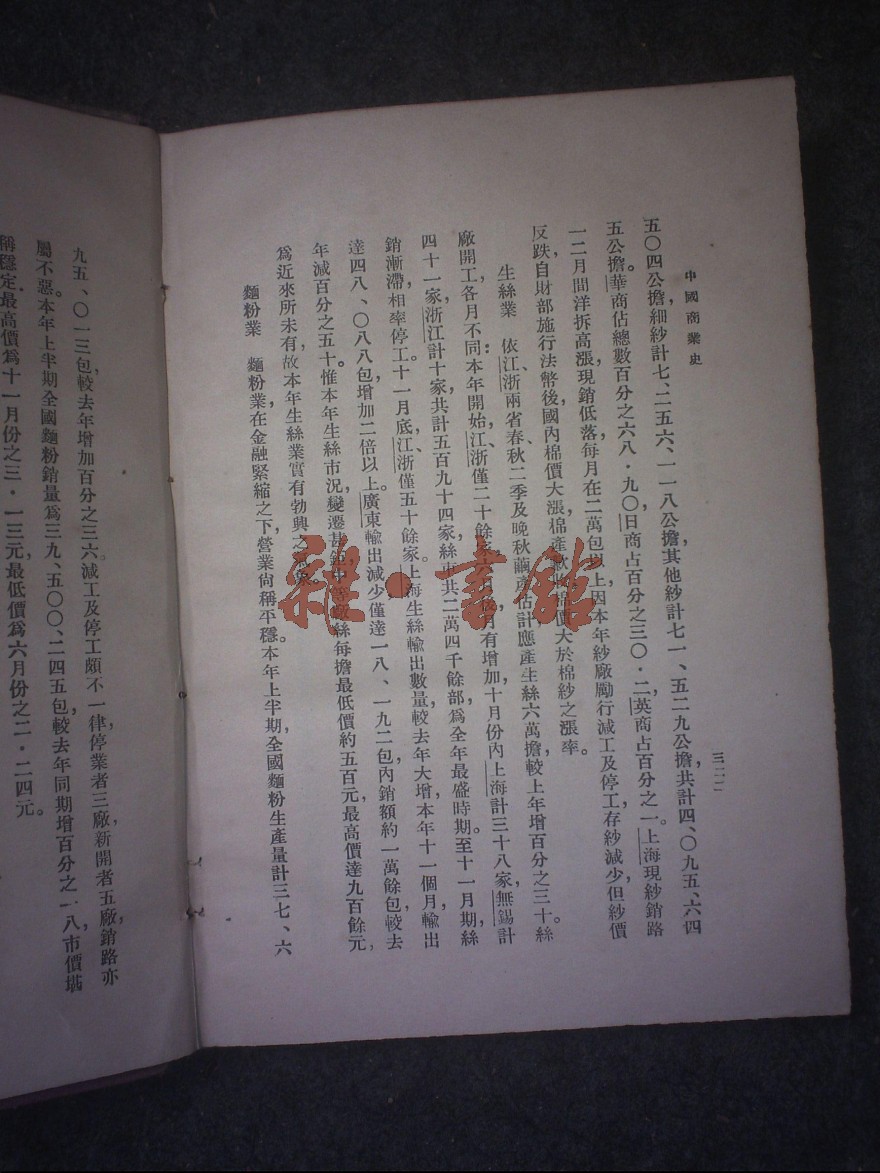 中國商業史
三二二
五〇四公擔，細紗計七、二五六、一一八公擔，其他紗計七一、五二九公擔，共計四、〇九五、六四
五公擔。華商佔總數百分之六八·九〇，日商占百分之三〇·二，英商占百分之一。上海現紗銷路
一二月間洋拆高漲，現銷低落，每月在二萬包以上，因本年紗廠勵行減工及停工，存紗減少，但紗價
反跌，自財部施行法幣後，國內棉價大漲，棉產歉收，棉價大於棉紗之漲率。
生絲業　依江、浙兩省春秋二季及晚秋繭產估計，應產生絲六萬擔，較上年增百分之三十。絲
廠開工，各月不同：本年開始，江、浙僅二十餘家，六月有增加，十月份內上海計三十八家，無錫計
四十一家，浙江計十家，共計五百九十四家，絲車共二萬四千餘部，為全年最盛時期。至十一月期絲
銷漸滯，相率停工。十一月底，江、浙僅五十餘家。上海生絲輸出數量，較去年大增，本年十一個月輸出
達四八、〇八八包，增加二倍以上。廣東輸出減少，僅達一八、一九二包，內銷額約一萬餘包，較去
年減百分之五十。惟本年生絲市況，變遷甚鉅，中等廠絲每擔最低價約五百元，最高價達九百餘元，
為近來所未有，故本年生絲業實有勃興之
麵粉業　麵粉業在金融緊縮之下，營業尚稱平穩。本年上半期，全國麵粉生產量計三七、六
九五、〇一三包，較去年增加百分之三六。減工及停工頗不一律，停業者三廠，新開者五廠，銷路亦
屬不惡。本年上半期全國麵粉銷量為三九、五〇〇、二四五包，較去年同期增百分之一八，市價堪
稱穩定，最高價為十一月份之三·一三元，最低價為六月份之二·二四元。
雜·書館